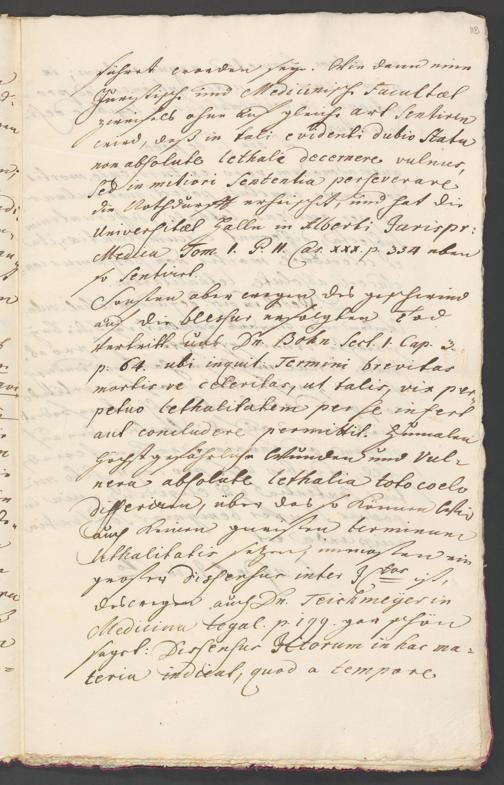 führet worden seye. Wie dann eine
Juristisch- und Medicinische Facultæt
zweifels ohne auf gleiche art sentiren
wird, daß in tali evidenti dubio statu
non absolute lethale decernere vulnus,
sed in mitiori sententia perseverare
die Nothdurfft erheischet, und hat die
Universitæt Halle in Alberti Jurispr:
Medica Tom. 1. P. II. Cas. XXX. p. 334 eben
so sentirt.
Sonsten aber wegen des geschwind
auf die blessur erfolgten Tod
vertritt uns Dr. Bohn. Sect. 1. Cap. 3.
p. 64. ubi inquit: Termini brevitas
mortisve celeritas, ut talis, vix per-
petuo lethalitatem per se infert
aut concludere permittit. Zumalen
höchst gefährliche Wunden und vul-
nera absolute lethalia toto coelo
differiren, über das so können
auch keinen gewissen terminum
lethalitatis setzen, immasten ein
groser dissensus inter ist,
deswegen auch Dr. Teichmeyer in
Medicina legal. p. 199. gar schön
sagt: Dissensus JCtorum in hac ma-
teria indicat, quod a tempore